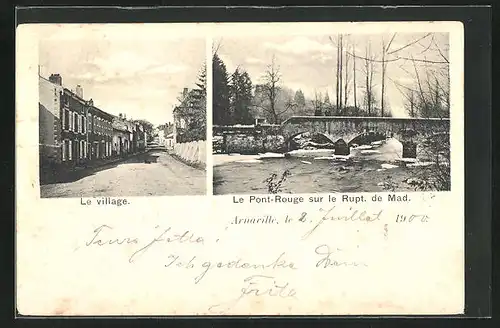 Le village.
Le Pont-Rouge sur le Rupt. de Mad.
Arnaville, le 2. Juillet 1900
Ich gedenke Dein
Frida